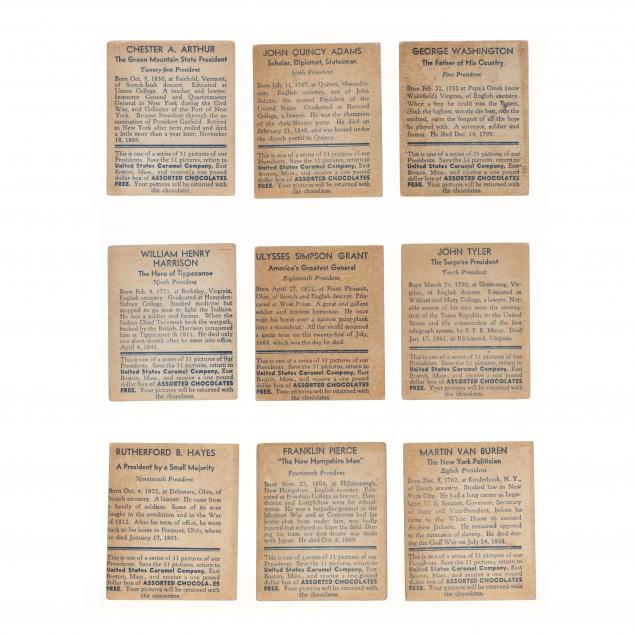 CHESTER A. ARTHUR
The Green Mountain State President
Twenty-first President
Born Oct. 5, 1830, at Fairfield, Vermont,
of Scotch-Irish descent. Educated at
Union College. A teacher and lawyer.
Inspector General and Quartermaster
General in New York during the Civil
War, and Collector of the Port of New
York. Became President through the as-
sassination of President Garfield. Retired
to New York after term ended and died
a little more than a year later, November
18, 1886.
This is one of a series of 31 pictures of our
Presidents. Save the 31 pictures, return to
United States Caramel Company, East
Boston, Mass., and receive a one pound
dollar box of ASSORTED CHOCOLATES
FREE. Your pictures will be returned with
the chocolates.
JOHN QUINCY ADAMS
Scholar, Diplomat, Statesman
Sixth President
Born July 11, 1767, at Quincy, Massachu-
setts. English ancestry, son of John
Adams, the second President of the
United States. Graduated at Harvard
College, a lawyer. He was the champion
of the Anti-Slavery party. He died on
February 21, 1848, and was buried under
the church portal in Quincy.
This is one of a series of 31 pictures of our
Presidents. Save the 31 pictures, return to
United States Caramel Company, East
Boston, Mass., and receive a one pound
dollar box of ASSORTED CHOCOLATES
FREE. Your pictures will be returned with
the chocolates.
GEORGE WASHINGTON
The Father of His Country
First President
Born Feb. 22, 1732 at Pope's Creek (now
Wakefield) Virginia, of English ancestry.
When a boy he could run the fastest,
climb the highest, wrestle the best, ride the
swiftest, swim the longest of all the boys
he played with. A surveyor, soldier and
farmer. He died Dec. 14, 1799.
This is one of a series of 31 pictures of our
Presidents. Save the 31 pictures, return to
United States Caramel Company, East
Boston, Mass., and receive a one pound
dollar box of ASSORTED CHOCOLATES
FREE. Your pictures will be returned with
the chocolates.
WILLIAM HENRY
HARRISON
The Hero of Tippecanoe
Ninth President
Born Feb. 9, 1773, at Berkeley, Virginia,
English ancestry. Graduated at Hampden-
Sidney College. Studied medicine but
stopped to go west to fight the Indians.
He was a soldier and farmer. When the
Indian Chief Tecumseh took the warpath,
backed by the British, Harrison conquered
him at Tippecanoe in 1811. He died only
one short month after he went into office,
April 4, 1841.
This is one of a series of 31 pictures of our
Presidents. Save the 31 pictures, return to
United States Caramel Company, East
Boston, Mass., and receive a one pound
dollar box of ASSORTED CHOCOLATES
FREE. Your pictures will be returned with
the chocolates.
ULYSSES SIMPSON GRANT
America's Greatest General
Eighteenth President
Born April 27, 1822, at Point Pleasant,
Ohio, of Scotch and English descent. Edu-
cated at West Point. A great and gallant
soldier and fearless horseman. He once
rode his horse over a narrow gang-plank
into a steamboat. All the world mourned
a great man on the twenty-first of July,
1885, which was the day he died.
This is one of a series of 31 pictures of our
Presidents. Save the 31 pictures, return to
United States Caramel Company, East
Boston, Mass., and receive a one pound
dollar box of ASSORTED CHOCOLATES
FREE. Your pictures will be returned with
the chocolates.
JOHN TYLER
The Surprise President
Tenth President
Born March 29, 1790, at Greenway, Vir-
ginia, of English descent. Educated at
William and Mary College, a lawyer. Note-
able events of his time were the annexa-
tion of the Texas Republic to the United
States and the construction of the first
telegraph system, by S. F. B. Morse. Died
Jan. 17, 1861, at Richmond, Virginia.
This is one of a series of 31 pictures of our
Presidents. Save the 31 pictures, return to
United States Caramel Company, East
Boston, Mass., and receive a one pound
dollar box of ASSORTED CHOCOLATES
FREE. Your pictures will be returned with
the chocolates.
RUTHERFORD B. HAYES
A President by a Small Majority
Nineteenth President
Born Oct. 4, 1822, at Delaware, Ohio, of
Scotch ancestry. A lawyer. He came from
a family of soldiers. Some of its sons
fought in the revolution and in the War
of 1812. After his term of office, he went
back to his home in Fremont, Ohio, where
he died January 17, 1893.
This is one of a series of 31 pictures of our
Presidents. Save the 31 pictures, return to
United States Caramel Company, East
Boston, Mass., and receive a one pound
dollar box of ASSORTED CHOCOLATES
FREE. Your pictures will be returned with
the chocolates.
FRANKLIN PIERCE
"The New Hampshire Man"
Fourteenth President
Born Nov. 23, 1804, at Hillsborough,
New Hampshire. English ancestry. Edu-
cated at Bowdoin College as lawyer. Haw-
thorne and Longfellow were his school-
mates. He was a brigadier-general in the
Mexican War and at Contreras had his
horse shot from under him, was badly
injured but refused to leave the field. Dur-
ing his term our first treaty was made
with Japan. He died Oct. 8, 1869.
This is one of a series of 31 pictures of our
Presidents. Save the 31 pictures, return to
United States Caramel Company, East
Boston, Mass., and receive a one pound
dollar box of ASSORTED CHOCOLATES
FREE. Your pictures will be returned with
the chocolates.
MARTIN VAN BUREN
The New York Politician
Eighth President
Born Dec. 5, 1782, at Kinderhook, N. Y.,
of Dutch ancestry. Studied law in New
York City. He had a long career as legis-
lator, U. S. Senator, Governor, Secretary
of State and Vice-President, before he
came to the White House to succeed
Andrew Jackson. He remained opposed
to the extension of slavery. He died dur-
ing the Civil War on July 24, 1862.
This is one of a series of 31 pictures of our
Presidents. Save the 31 pictures, return to
United States Caramel Company, East
Boston, Mass., and receive a one pound
dollar box of ASSORTED CHOCOLATES
FREE. Your pictures will be returned with
the chocolates.